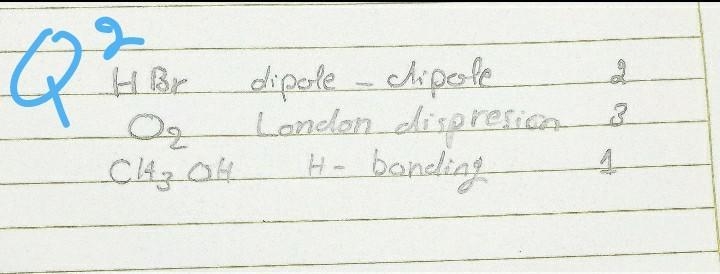 Q2
HBr dipole - dipole 2
O2 London dispresion 3
CH3 OH H- bonding 1